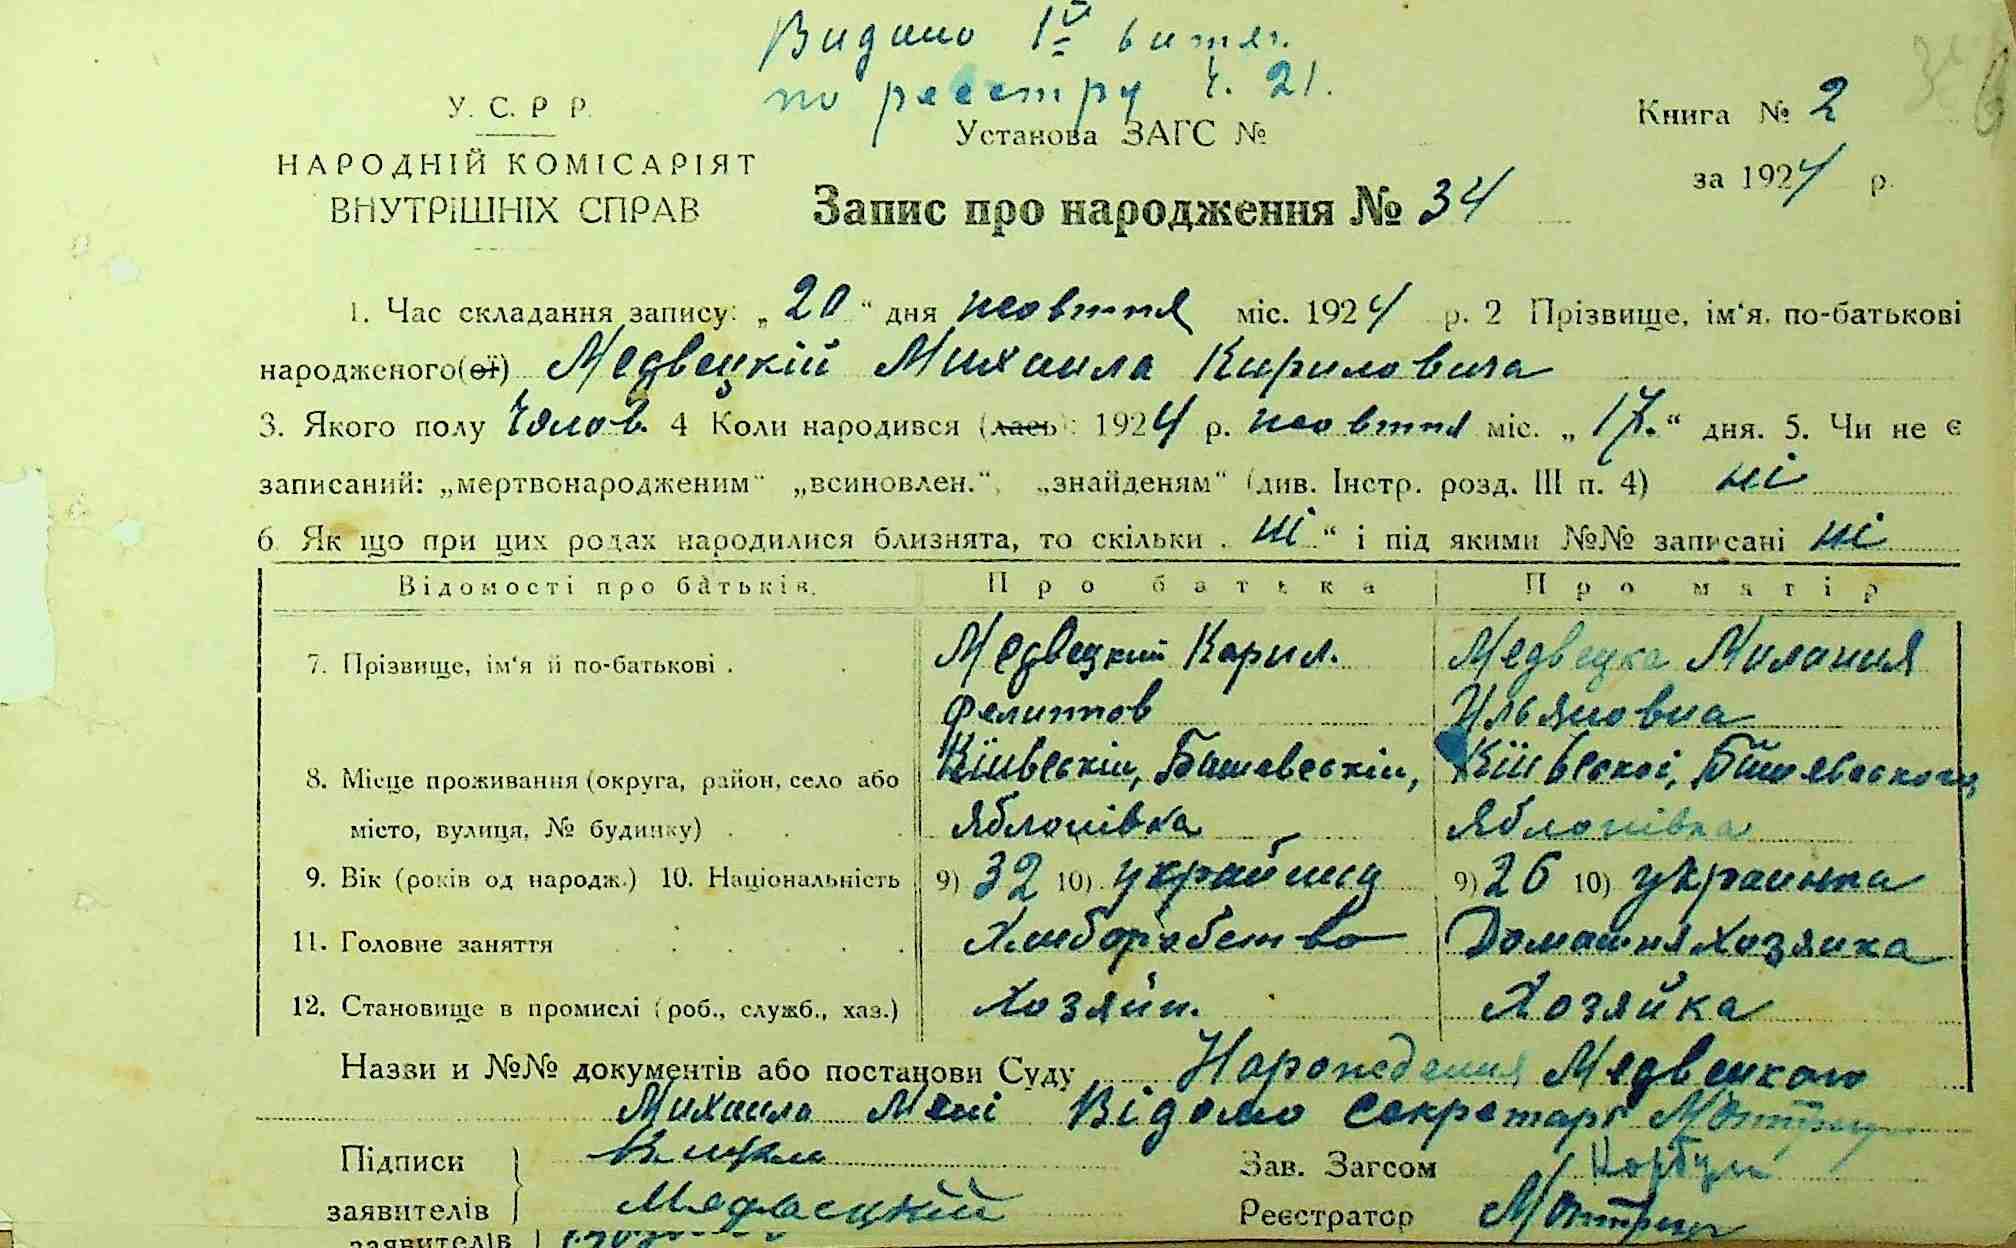 Видано 1й витяг.
по реєстру ч. 21.
У. С. Р. Р.
НАРОДНІЙ КОМІСАРІЯТ
ВНУТРІШНІХ СПРАВ
Установа ЗАГС №
Книга № 2
за 1924 р.
Запис про народження № 34
1. Час складання запису: „20“ дня жовтня міс. 1924 р. 2 Прізвище, ім'я, по-батькові
народженого(ої) Медвецкій Михаила Кириловича
3. Якого полу Чолов. 4 Коли народився (лась): 1924 р. жовтня міс. „17.“ дня. 5. Чи не є
записаний: „мертвонародженим“ „всиновлен.“, „знайденям“ (див. Інстр. розд. III п. 4) ні
6. Як що при цих родах народилися близнята, то скільки „ні“ і під якими №№ записані ні
Відомості про батьків. Про батька Про матір
7. Прізвище, ім'я й по-батькові . Медвецкий Кирил. Медвецка Милания
Филиппов Ульяновна
8. Місце проживання (округа, район, село або Київскій, Бишевскій, Київскої, Бишевского,
місто, вулиця, № будинку) . Яблонівка Яблонівка
9. Вік (років од народж.) 10. Національність 9) 32 10) украйинц 9) 26 10) украинка
11. Головне заняття Хлиборобство Домашня Хозяйка
12. Становище в промислі (роб., служб., хаз.) Хозяйн. Хозяйка
Назви и №№ документів або постанови Суду Нарождения Медвецкого
Михаила Мені Відомо секретарь
Підписи
заявителів
Зав. Загсом
Реєстратор
заявителів